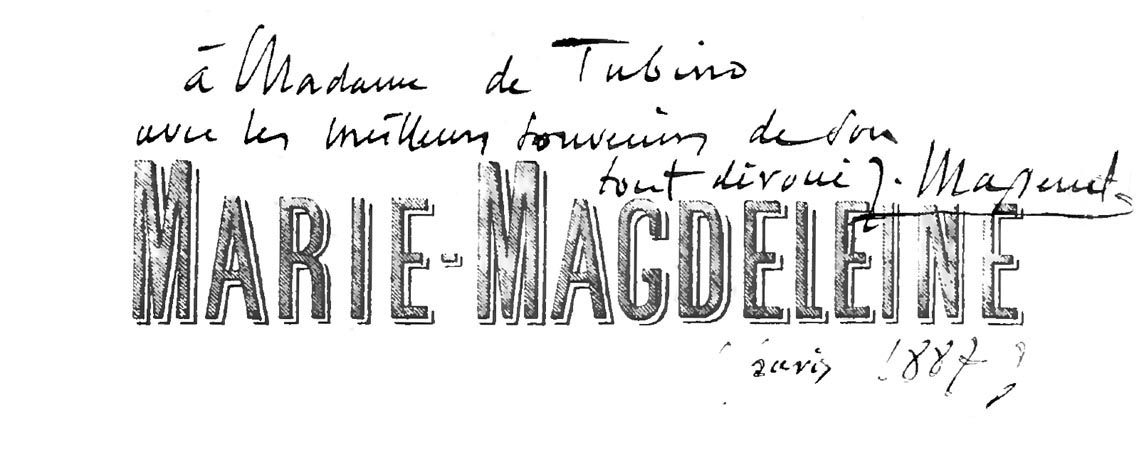 à Madame de Tubino
avec les meilleurs souvenirs de son
tout dévoué J. Massenet
MARIE-MAGDELEINE
(Paris 1887)